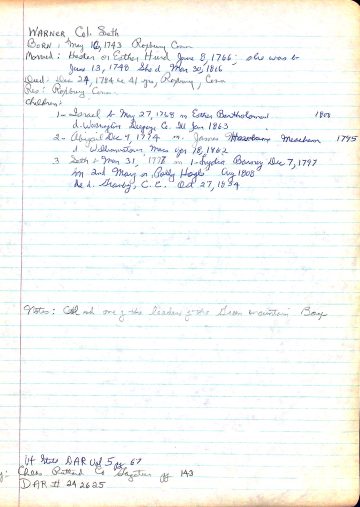 WARNER, Col. Seth
BORN: May 1, 1743 Roxbury Conn
Married: Hester or Esther Hurd June 8, 1766; she was b
June 13, 1748 She d Mar 30, 1816
Died: Dec 26, 1784 ae 41 yrs, Roxbury, Conn
Res: Roxbury Conn
Children:
1- Israel b May 27, 1768 m Esther Bartholomew 1808
d. Jan 1863
2- Abigail Dec 4, 1774 m James Meacham 1795
d. Williamstown, Mass Apr 18, 1862
3 Seth b Mar 31, 1778 m 1- Lydia Barney Dec 7, 1797
m 2nd Mary or Polly Aug 1808
he d. Granby, C.E. Oct 27, 1854
Notes: Col one of the leaders of the Green mountain Boys
Vt State DAR Vol 5 pg 67
Childs Rutland Co Gazetteer pg 143
DAR # 242625